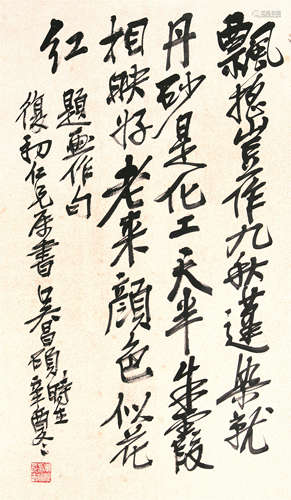 飄搖豈作九秋蓬染就
丹砂是化工天半朱霞
相映好老來顏色似花
紅
題畫作句
復初仁兄屬書吳昌碩時在辛酉冬